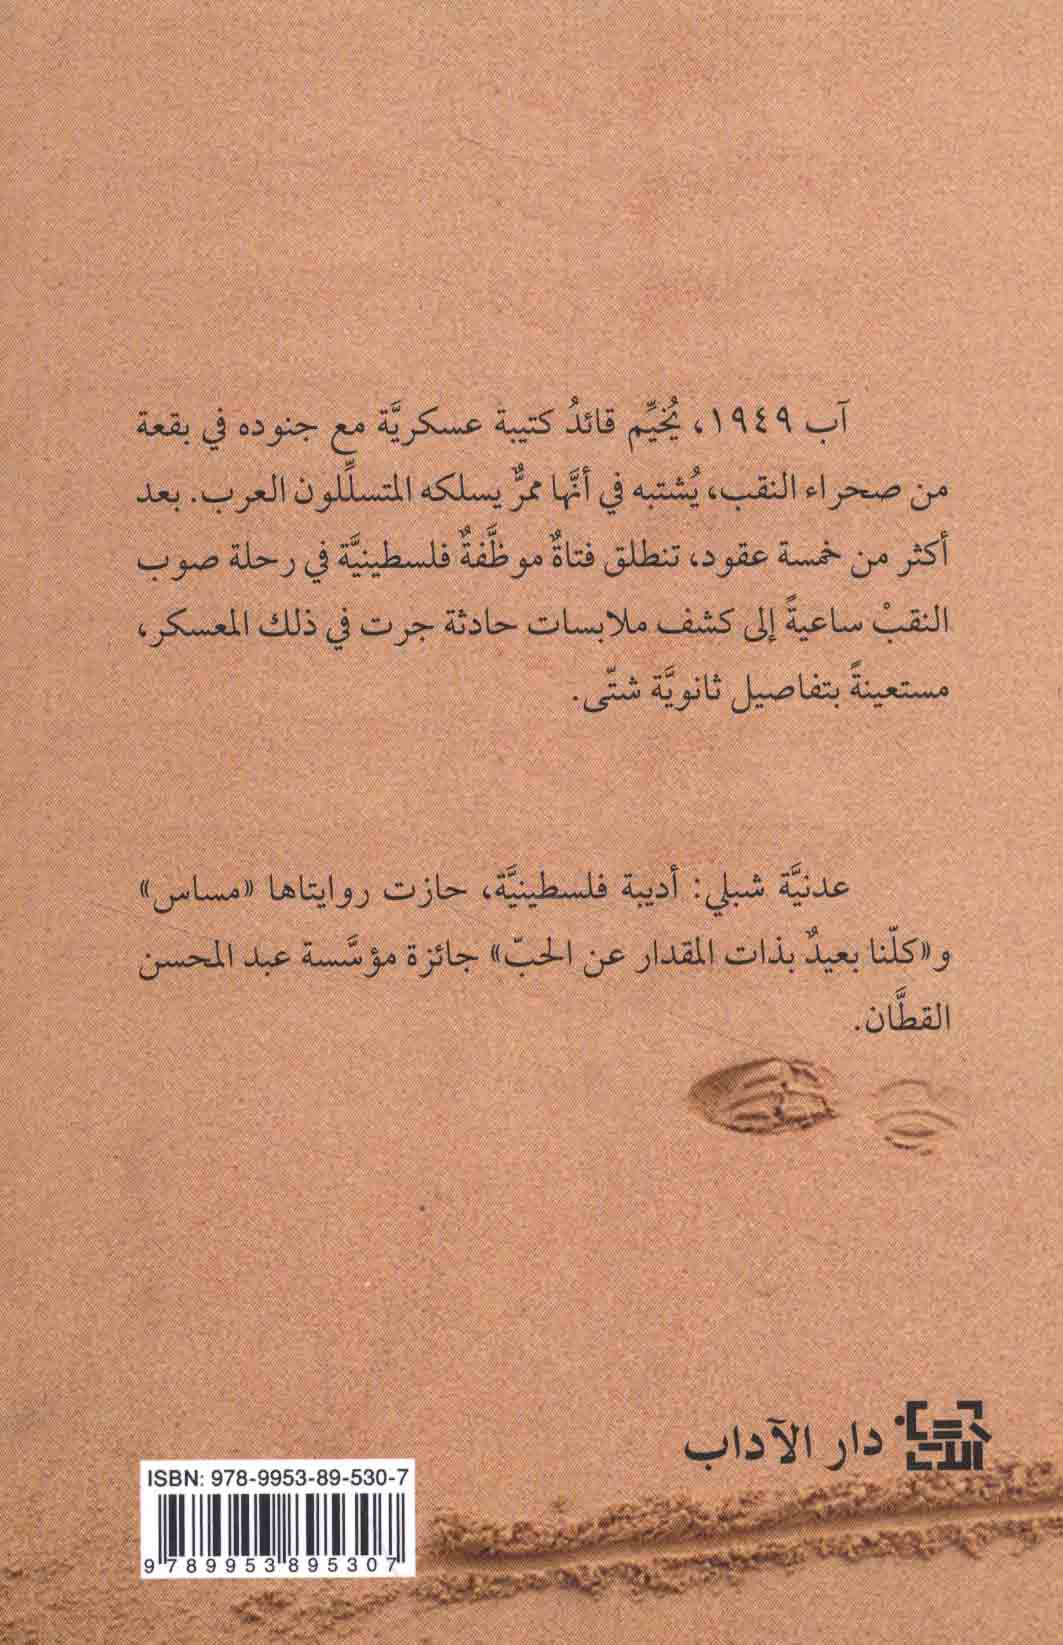 آب ١٩٤٩، يُخيِّم قائدُ كتيبة عسكريَّة مع جنوده في بقعة
من صحراء النقب، يُشتبه في أنَّها ممرٌّ يسلكه المتسلِّلون العرب. بعد
أكثر من خمسة عقود، تنطلق فتاةٌ موظَّفةٌ فلسطينيَّة في رحلة صوب
النقبْ ساعيةً إلى كشف ملابسات حادثة جرت في ذلك المعسكر،
مستعينةً بتفاصيل ثانويَّة شتّى.
عدنيَّة شبلي: أديبة فلسطينيَّة، حازت روايتاها «مساس»
و«كلّنا بعيدٌ بذات المقدار عن الحبّ» جائزة مؤسَّسة عبد المحسن
القطَّان.
دار الآداب
ISBN: 978-9953-89-530-7
9 789953 895307